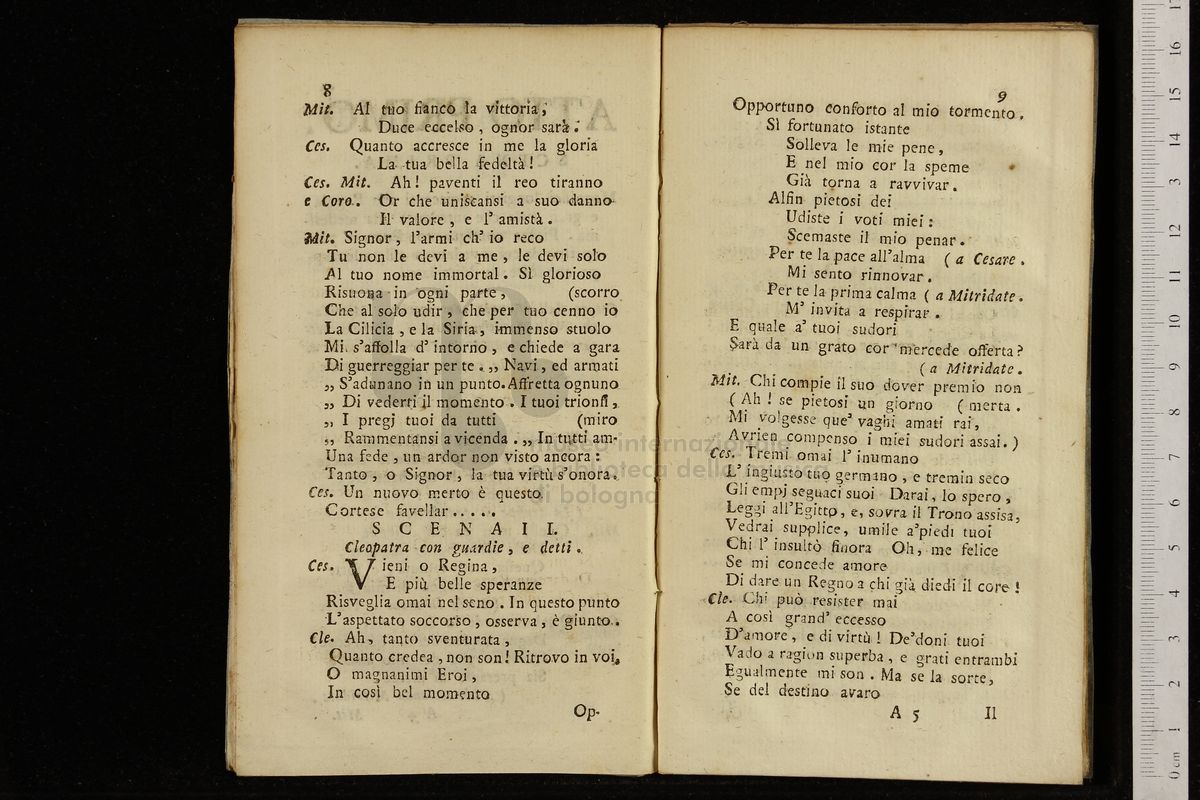 8
Mit. Al tuo fianco la vittoria,
Duce eccelso, ognor sarà.
Ces. Quanto accresce in me la gloria
La tua bella fedeltà!
Ces. Mit. Ah! paventi il reo tiranno
e Coro. Or che uniscansi a suo danno
Il valore, e l' amistà.
Mit. Signor, l'armi ch' io reco
Tu non le devi a me, le devi solo
Al tuo nome immortal. Sì glorioso
Risuona in ogni parte, (scorro
Che al solo udir, che per tuo cenno io
La Cilicia, e la Siria, immenso stuolo
Mi s'affolla d' intorno, e chiede a gara
Di guerreggiar per te. ,, Navi, ed armati
,, S'adunano in un punto. Affretta ognuno
,, Di vederti il momento. I tuoi trionfi,
,, I pregj tuoi da tutti (miro
,, Rammentansi a vicenda. ,, In tutti am-
Una fede, un ardor non visto ancora:
Tanto, o Signor, la tua virtù s'onora.
Ces. Un nuovo merto è questo
Cortese favellar.....
SCENA II.
Cleopatra con guardie, e detti.
Ces. Vieni o Regina,
E più belle speranze
Risveglia omai nel seno. In questo punto
L'aspettato soccorso, osserva, è giunto.
Cle. Ah, tanto sventurata,
Quanto credea, non son! Ritrovo in voi,
O magnanimi Eroi,
In così bel momento
Op-
9
Opportuno conforto al mio tormento.
Sì fortunato istante
Solleva le mie pene,
E nel mio cor la speme
Già torna a ravvivar.
Alfin pietosi dei
Udiste i voti miei:
Scemaste il mio penar.
Per te la pace all'alma (a Cesare.
Mi sento rinnovar.
Per te la prima calma (a Mitridate.
M' invita a respirar.
E quale a' tuoi sudori
Sarà da un grato cor mercede offerta?
(a Mitridate.
Mit. Chi compie il suo dover premio non
(Ah! se pietosi un giorno (merta.
Mi volgesse que' vaghi amati rai,
Avrien compenso i miei sudori assai.)
Ces. Tremi omai l' inumano
L' ingiusto tuo germano, e tremin seco
Gli empj seguaci suoi Darai, lo spero,
Leggi all'Egitto, e, sovra il Trono assisa,
Vedrai supplice, umile a'piedi tuoi
Chi l' insultò finora Oh, me felice
Se mi concede amore
Di dare un Regno a chi già diedi il core!
Cle. Chi può resister mai
A così grand' eccesso
D'amore, e di virtù! De'doni tuoi
Vado a ragion superba, e grati entrambi
Egualmente mi son. Ma se la sorte,
Se del destino avaro
A 5 Il
museo internazionale
e biblioteca della musica
di bologna